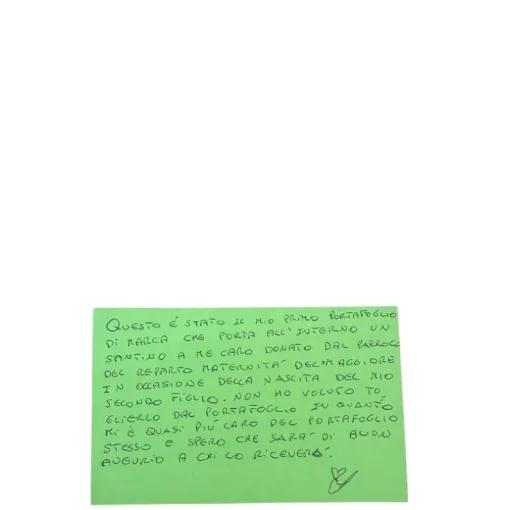 QUESTO É STATO IL MIO PRIMO PORTAFOGLIO
DI MARCA CHE PORTA ALL'INTERNO UN
SANTINO A ME CARO DONATO DAL PARROCO
DEL REPARTO MATERNITA' DEL MAGGIORE
IN OCCASIONE DELLA NASCITA DEL MIO
SECONDO FIGLIO. NON HO VOLUTO TO
GLIERLO DAL PORTAFOGLIO IN QUANTO
MI È QUASI PIÚ CARO DEL PORTAFOGLIO
STESSO E SPERO CHE SARA' DI BUON
AUGURIO A CHI LO RICEVERÁ.